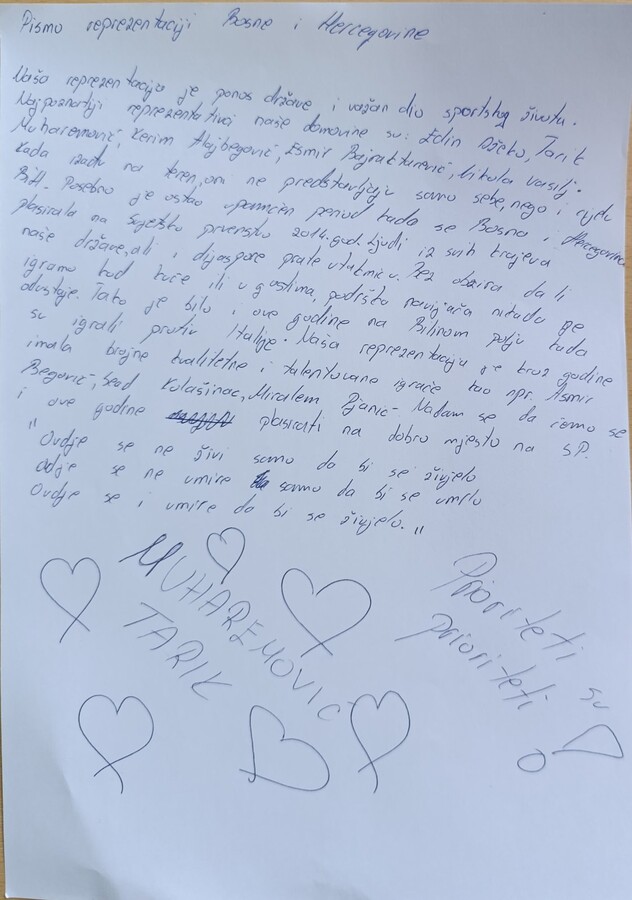 Pismo reprezentaciji Bosne i Hercegovine
Naša reprezentacija je ponos države i važan dio sportskog života.
Najpoznatiji reprezentativci naše domovine su: Edin Džeko, Tarik
Muharemović, Kerim Alajbegović, Esmir Bajraktarević, Nikola Vasilj.
Kada izađu na teren, oni ne predstavljaju samo sebe, nego i cijelu
BiH. Posebno je ostao upamćen period kada se Bosna i Hercegovina
plasirala na Svjetsko prvenstvo 2014. god. Ljudi iz svih krajeva
naše države, ali i dijaspore prate utakmicu. Bez obzira da li
igramo kod kuće ili u gostima, podrška navijača nikada ne
odustaje. Tako je bilo i ove godine na Bilinom polju kada
su igrali protiv Italije. Naša reprezentacija je kroz godine
imala brojne kvalitetne i talentovane igrače kao npr. Asmir
Begović, Sead Kolašinac, Miralem Pjanić. Nadam se da ćemo se
i ove godine plasirati na dobro mjesto na SP.
"Ovdje se ne živi samo da bi se živjelo
Odje se ne umire samo da bi se umrlo
Ovdje se i umire da bi se živjelo."
MUHAREMOVIĆ
TARIK
Prioriteti su
prioriteti!